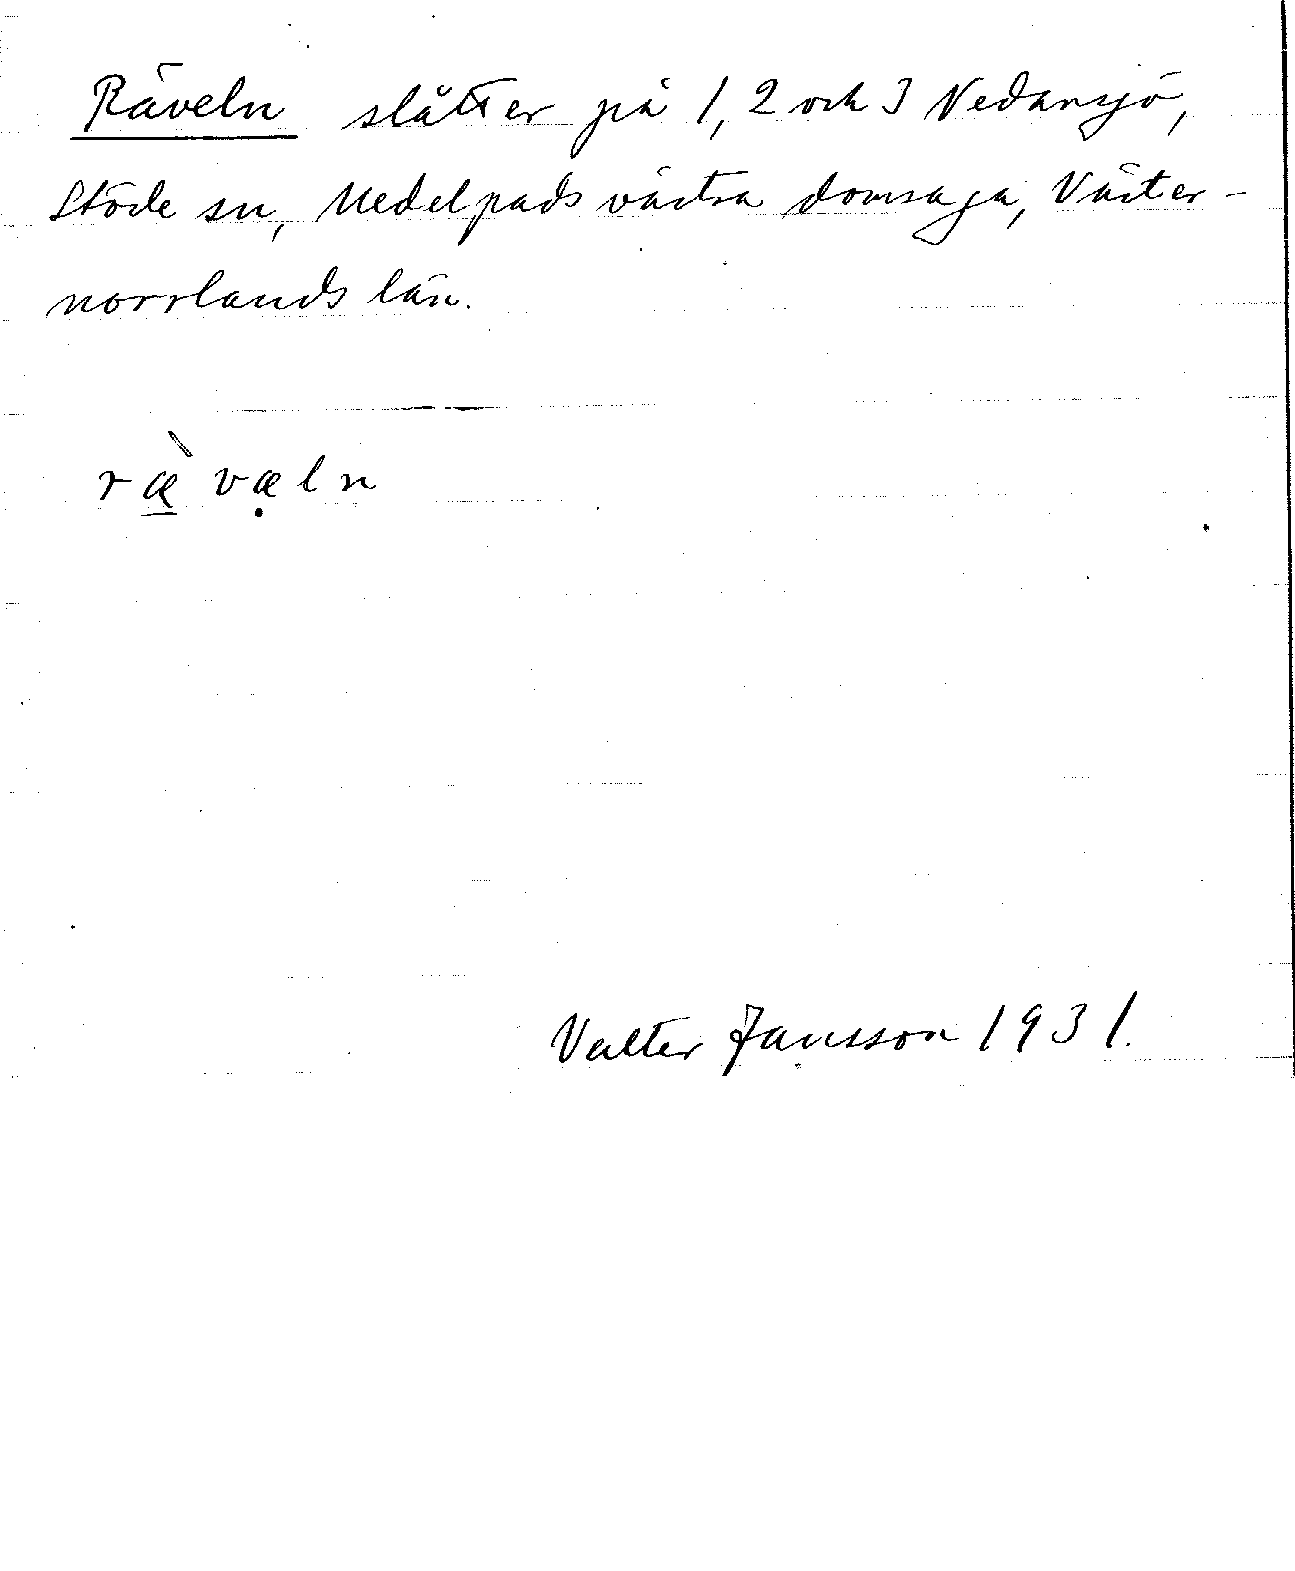 Räveln slåtter på 1, 2 och 3 Vedarsjö,
Stöde sn, Medelpads västra domsaga, Väster-
norrlands län.
ræ̀væln
Valter Jansson 1931.